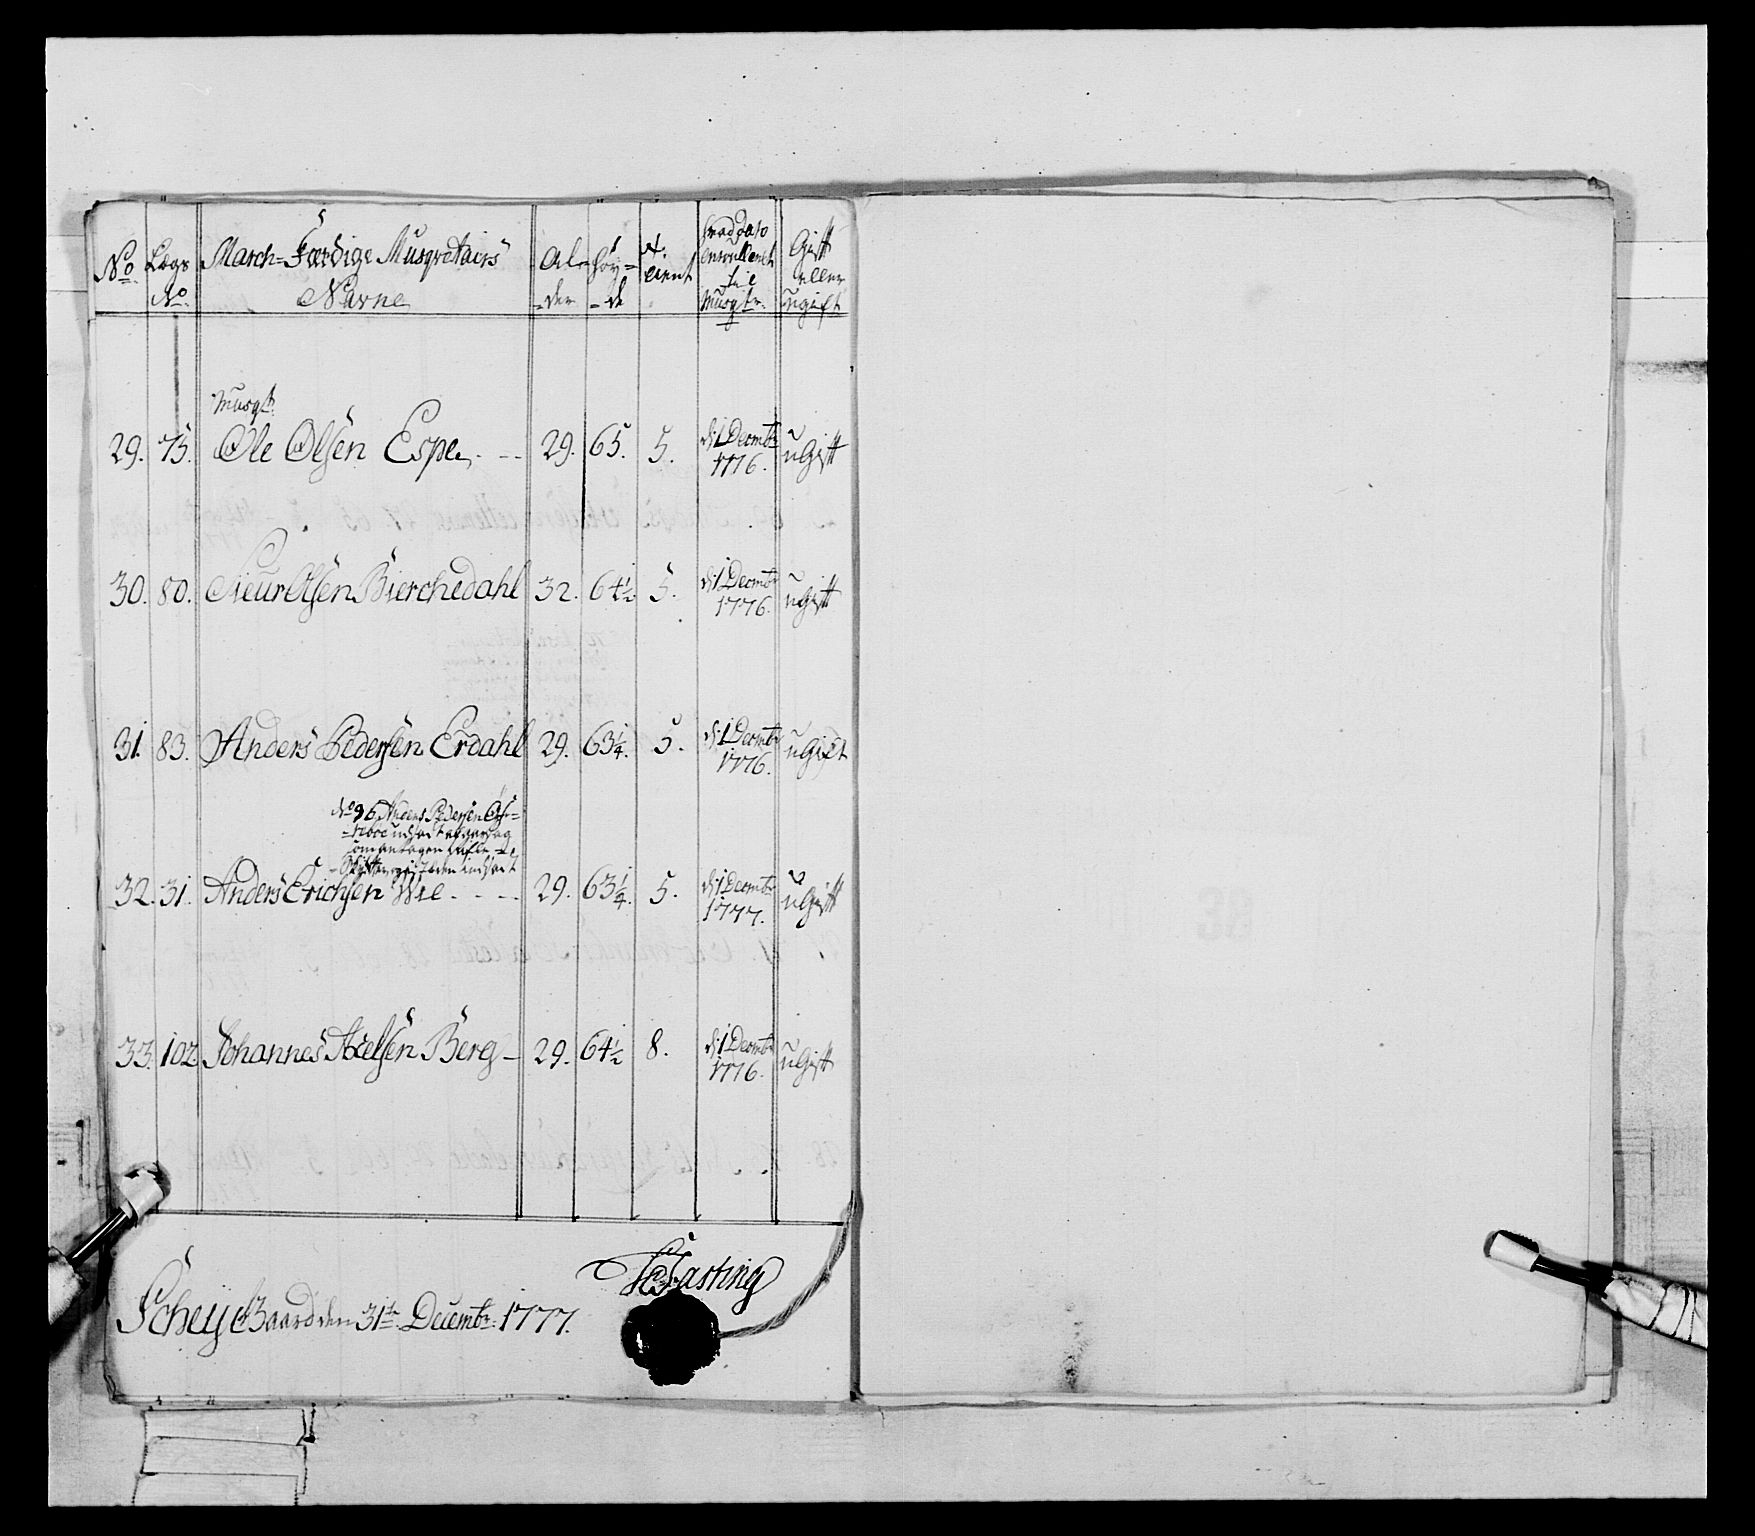 No Lægs No. March-Færdige Musqvetairs Navne Al-der Høy-de t: eient hvad dato enroulleret til Musqtr. Gift eller ugift
Musqt.
29. 75. Ole Olsen Espe. -- 29. 65. 5. d: 1 Decmbr 1776. uGift
30. 80. Sieur Olsen Bierchedahl 32. 64½ 5. d: 1 Decmbr 1776. uGift
31. 83. Anders Pedersen Erdahl 29. 63¼. 5. d: 1 Decmbr 1776. uGift
No 96 Anders Pedersen
32. 31. Anders Erichsen Wie - - - - 29. 63¼. 5. d: 1 Decmbr 1777. uGift
33. 102 Johannes Axelsen Berg - 29. 64½ 8. d: 1 Decmbr 1776. uGift
Fasting
Gaard den 31te Decembr. 1777.